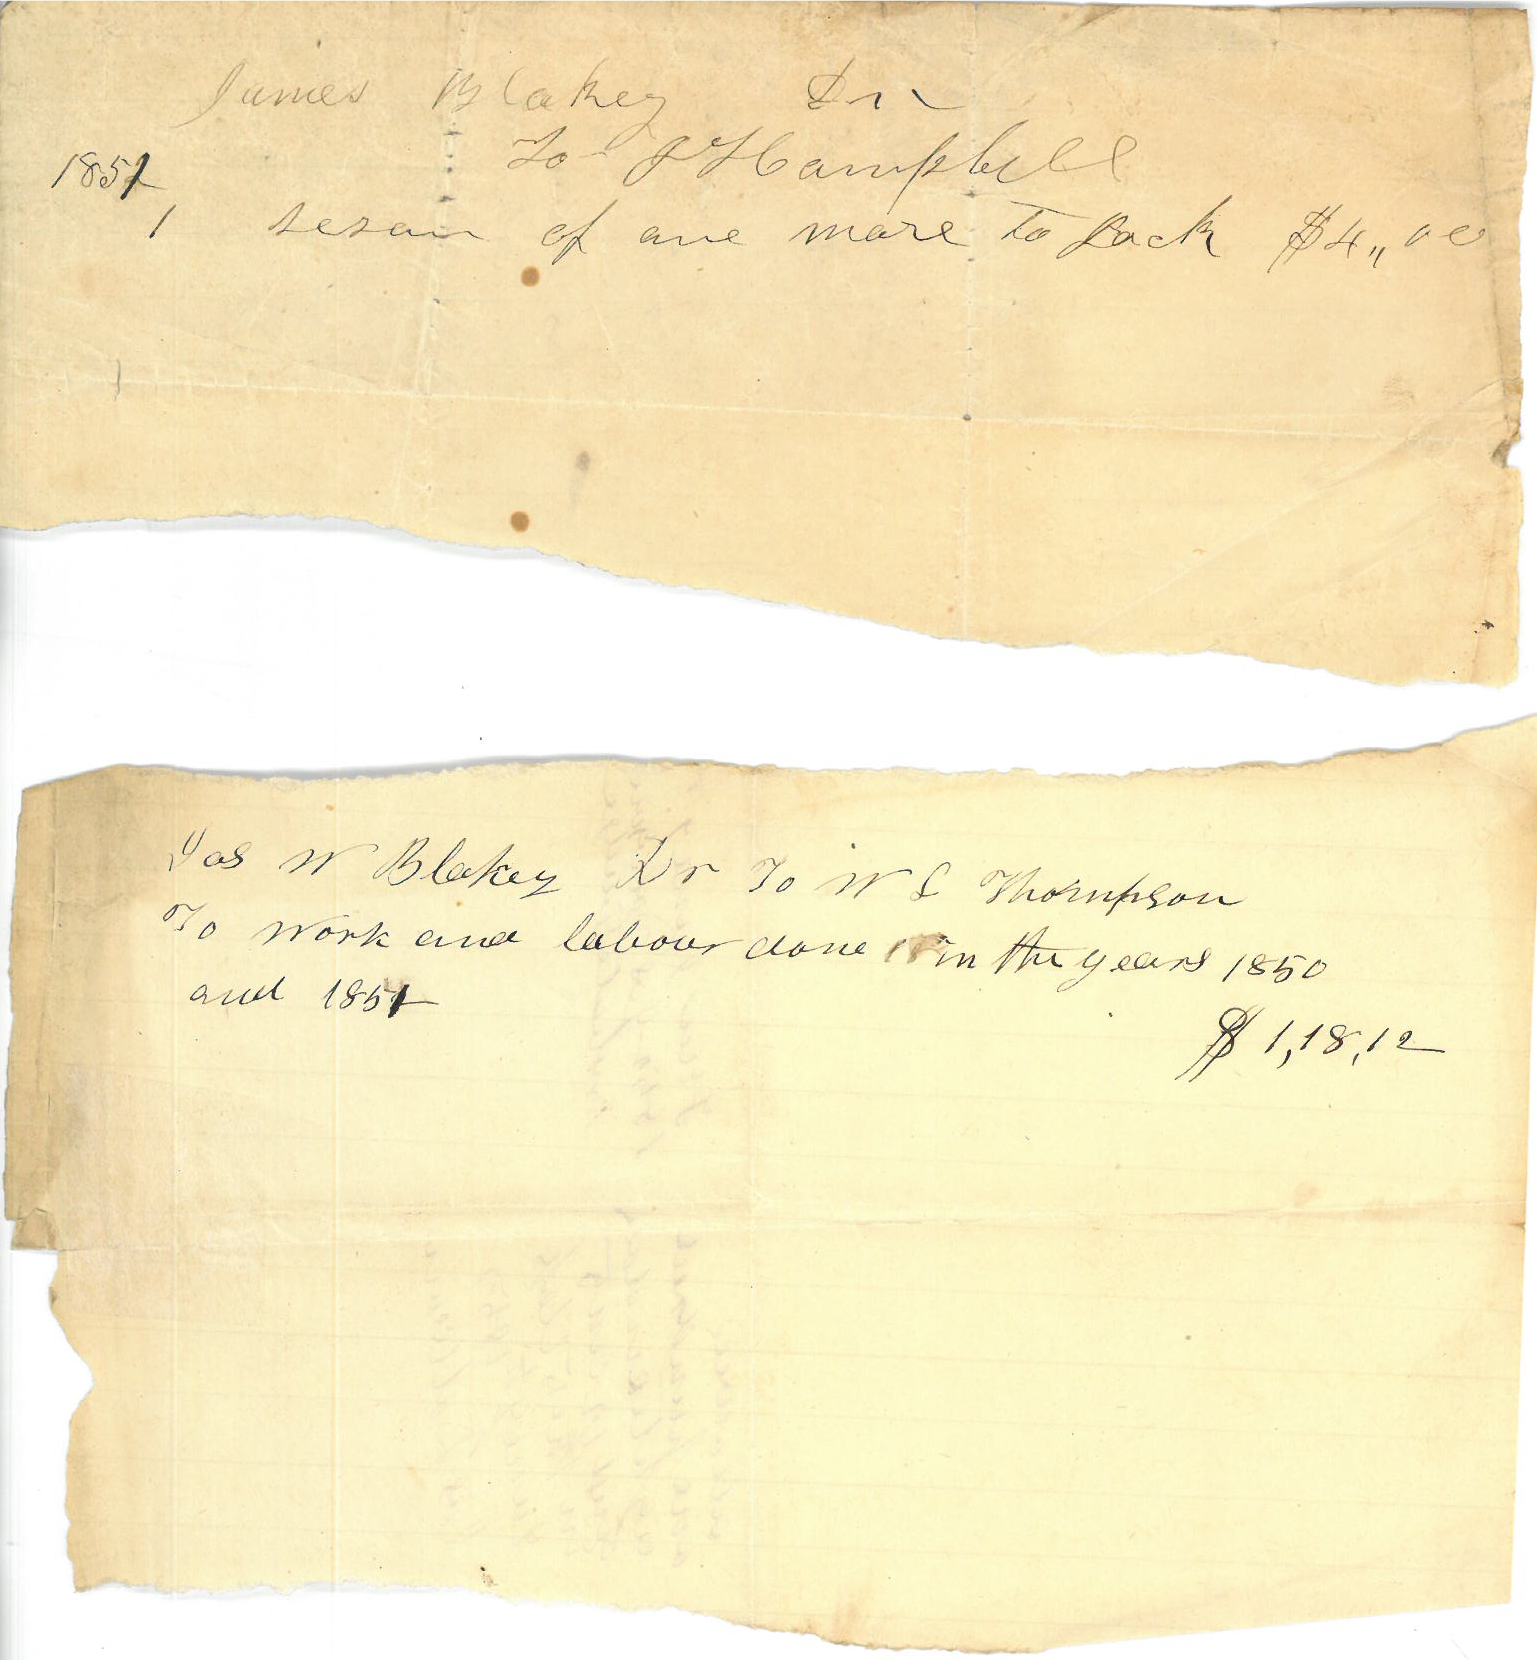 James Blakey Dr
To J H Campbell
1851
1 sesan of one mare to Jack $4,,00
Jas W Blakey Dr To W L Thompson
To Work and labour done in the years 1850
and 1851
$ 1,18,12